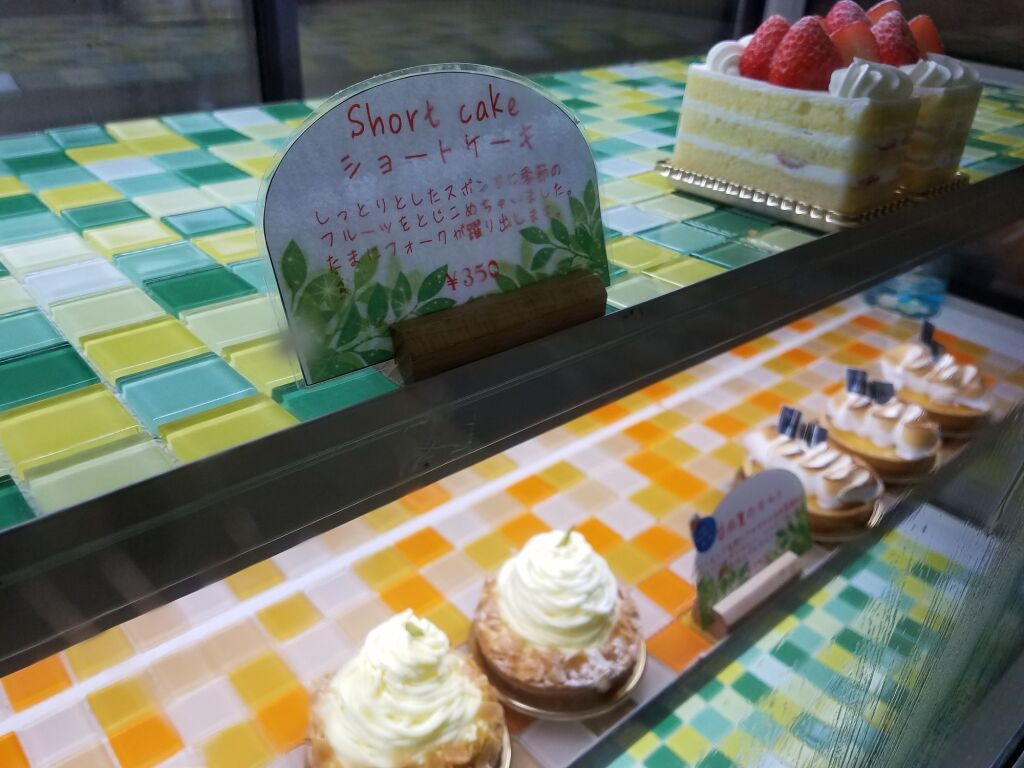 Short cake
ショートケーキ
しっとりとしたスポンジに季節の
フルーツをとじこめちゃいました。
たまにフォークが躍り出します。
¥350